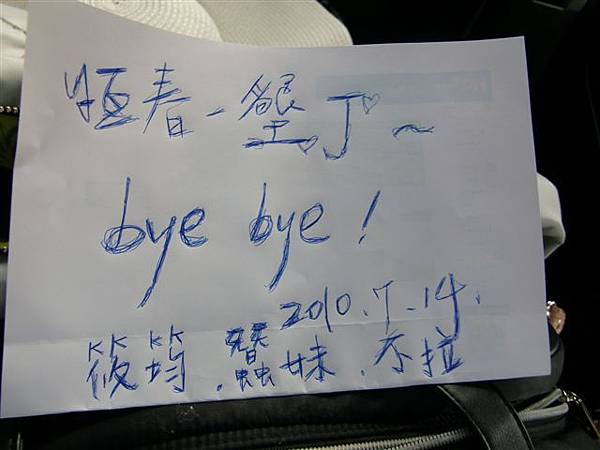 恆春-墾丁~
bye bye!
2010.7.14.
筱筠.蠶妹.拉